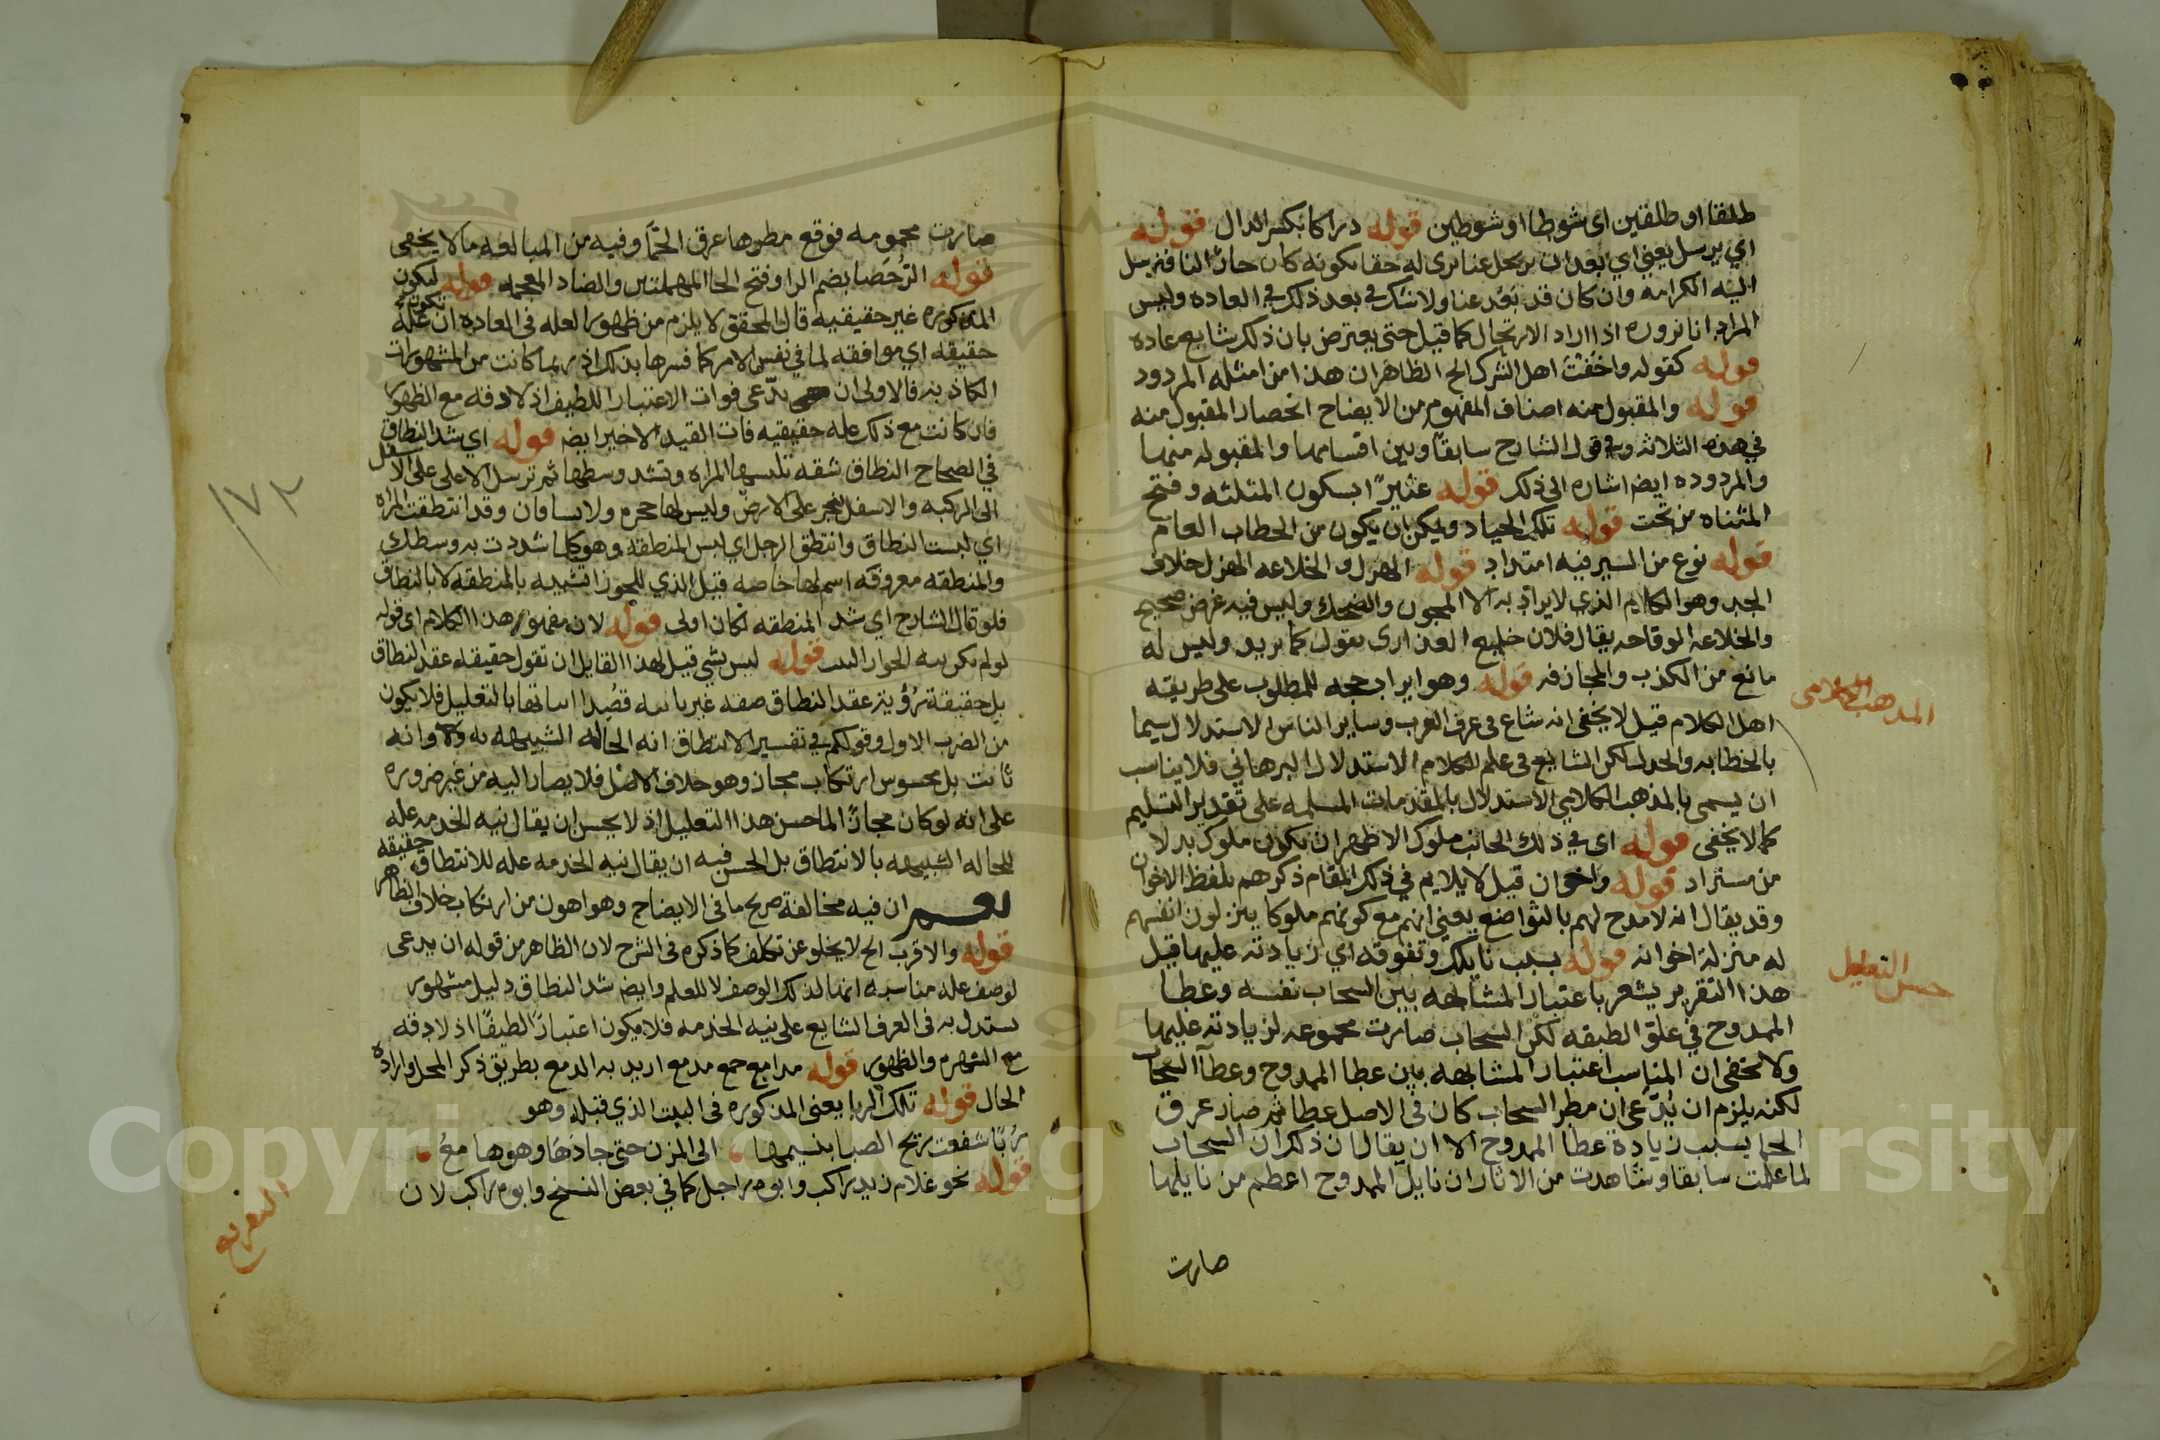 طلقا او طلقين اى شوطا او شوطين قوله دراكا بكسر الدال قوله
اي يرسل يعني اي بعد ان يرحل عنا نرى له حقا بكونه كان جارا لنا فنرسل
اليه الكرامه وان كان قد بَعُد عنا ولا شك في بعد ذلك في العاده وليس
المراد انا نزوده اذا اراد الارتحال كما قيل حتى يعترض بان ذلك شايع عاده
قوله كقوله واخفت اهل الشرك الح الظاهر ان هذا من امثله المردود
قوله والمقبول منه اصناف المفهوم من الايضاح انحصار المقبول منه
في هذه الثلاثه وفي قول الشارح سابقا وبين اقسامها والمقبوله منها
والمردوده ايض اشاره الى ذلك قوله عثيرًا بسكون المثلثه وفتح
المثناه من تحت قوله تلك الجياد ويمكن ان يكون من الخطاب العام
قوله نوع من السير فيه امتداد قوله الهزل والخلاعه الهزل خلاف
الجد وهو الكلام الذي لا يراد به الا المجون والضحك وليس فيه غرض صحيح
والخلاعه الوقاحه يقال فلان خليع العذار اى يقول كما يريد وليس له
مانع من الكذب والمجازفه قوله وهو ايراد حجه للمطلوب على طريقه
المذهب الكلامى
اهل الكلام قيل لا يخفى انه شاع فى عرف العرب وساير الناس الاستدلال سيما
بالخطابه والجدل لكن الشايع فى علم الكلام الاستدلال البرهاني فلا يناسب
ان يسمى بالمذهب الكلامي الاستدلال بالمقدمات المسلمه على تقدير التسليم
كما لا يخفى قوله اى في ذلك الجانب ملوك الاظهر ان تكون ملوك بدلا
من مستراد قوله واخوان قيل لا يلايم في ذلك المقام ذكرهم بلفظ الاخوان
وقد يقال انه لا مدح لهم بالتواضع يعني انهم مع كونهم ملوكا ينزلون انفسهم
له منزلة اخوانه قوله بسبب نايلك وتفوقه اي زيادته عليها قيل
حسن التعليل
هذا التقرير يشعر باعتبار المشابهه بين السحاب نفسه وعطا
الممدوح في علو الطبقه لكن السحاب صارت محمومه لزيادته عليها
ولا يخفى ان المناسب اعتبار المشابهه بين عطا الممدوح وعطآ السحاب
لكنه يلزم ان يُدّعى ان مطر السحاب كان فى الاصل عطا ثم صار عرق
الحما بسبب زيادة عطا الممدوح الا ان يقال ان ذلك ان السحاب
لما علمت سابقا وشاهدت من الاثار ان نايل الممدوح اعظم من نايلها
صارت
صارت محمومه فوقع مطرها عرق الحمّا وفيه من المبالغه ما لا يخفى
قوله الرُّحَضا بضم الرا وفتح الحا المهملتين والضاد المعجمه قوله لتكون
المذكوره غير حقيقيه قال المحقق لا يلزم من ظهور العله فى العاده ان تكون عله
حقيقه اي موافقه لما في نفس الامر كما فسرها بذلك اذ ربما كانت من المشهورات
الكاذبه فالاولى ان يدّعى فوات الاعتبار اللطيف اذ لا دقه مع الظهور
فان كانت مع ذلك عله حقيقيه فات القيد الاخير ايض قوله اي شد النطاق
في الصحاح النطاق شقه تلبسها المراه وتشد وسطها ثم ترسل الاعلى على الاسفل
الى الركبه والاسفل ينجر على الارض وليس لها حجزه ولا ساقان وقد انتطقت المراه
اي لبست النطاق وانتطق الرجل اي لبس المنطقه وهو كلما شددت به وسطك
والمنطقه معروفه اسم لها خاصه قيل الذي للجوزا تشبيه بالمنطقه لا بالنطاق
فلو قال الشارح اي شد المنطقه لكان اولى قوله لان مفهوم هذا الكلام اى قوله
لو لم يكن نيه الجوزا البيت قوله ليس بشي قيل لهذا القايل ان تقول حقيقه عقد النطاق
بل حقيقة رُؤية عقد النطاق صفه غير ثابته قصِد اثباتها بالتعليل فلا يكون
من الضرب الاول وقولكم في تفسير الانتطاق انه الحاله الشبيهه به وانه
ثابت بل محسوس ارتكاب مجاز وهو خلاف الاصل فلا يصار اليه من غير ضروره
على انه لو كان مجازًا لما حسن هذا التعليل اذ لا يحسن ان يقال نيه الخدمه عله
للحاله الشبيهه بالانتطاق بل الحسن فيه ان يقال نيه الخدمه عله للانتطاق حقيقه
نعم ان فيه مخالفة صريح ما فى الايضاح وهو اهون من ارتكاب خلاف الظاهر
قوله والاقرب الح لا يخلو عن تكلف كما ذكره فى الشرح لان الظاهر من قوله ان يدعى
لوصف عله مناسبه انها لذلك الوصف لا للعلم وايض شد النطاق دليل مشهور
يستدل به فى العرف الشايع على نيه الخدمه فلا يكون اعتبارًا لطيفًا اذ لا دقه
مع الشهره والظهور قوله مدامع جمع مدمع اريد به الدمع بطريق ذكر المحل واراده
الحال قوله تلك الربا يعنى المذكوره فى البيت الذي قبله وهو
رُبًا شفعت ريح الصبا بنسيمها الى المزن حتى جادها وهو هامعُ
قوله نحو غلام زيد راكب وابوه راجل كما في بعض النسخ وابوه راكب لان
التفريع
١٧٢